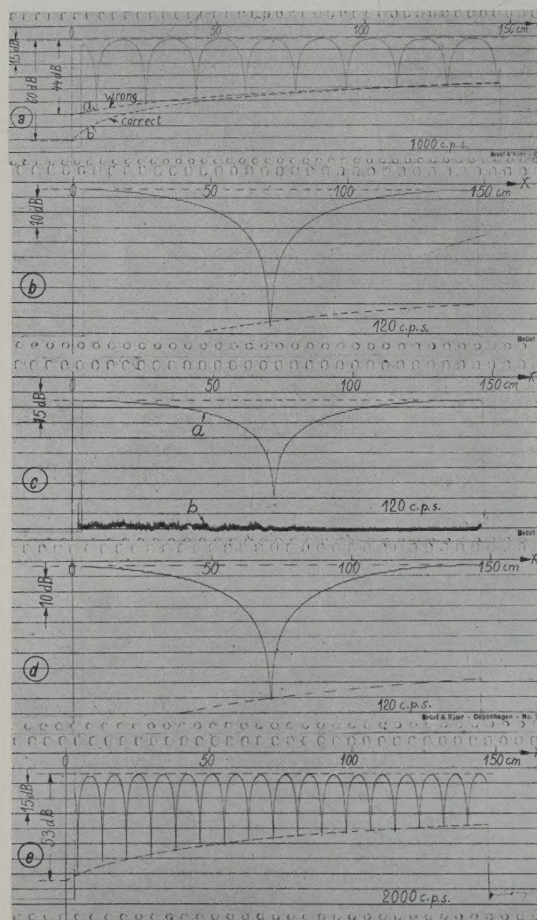 0 50 100 150 cm
15 dB
60 dB
44 dB
a wrong
b correct
a
1000 c.p.s.
0 50 100 150 cm X
10 dB
b
120 c.p.s.
0 50 100 150 cm X
15 dB
a
c
b
120 c.p.s.
0 50 100 150 cm X
10 dB
d
120 c.p.s.
Brüel & Kjær - Copenhagen - No.
0 50 100 150 cm
15 dB
53 dB
e
2000 c.p.s.